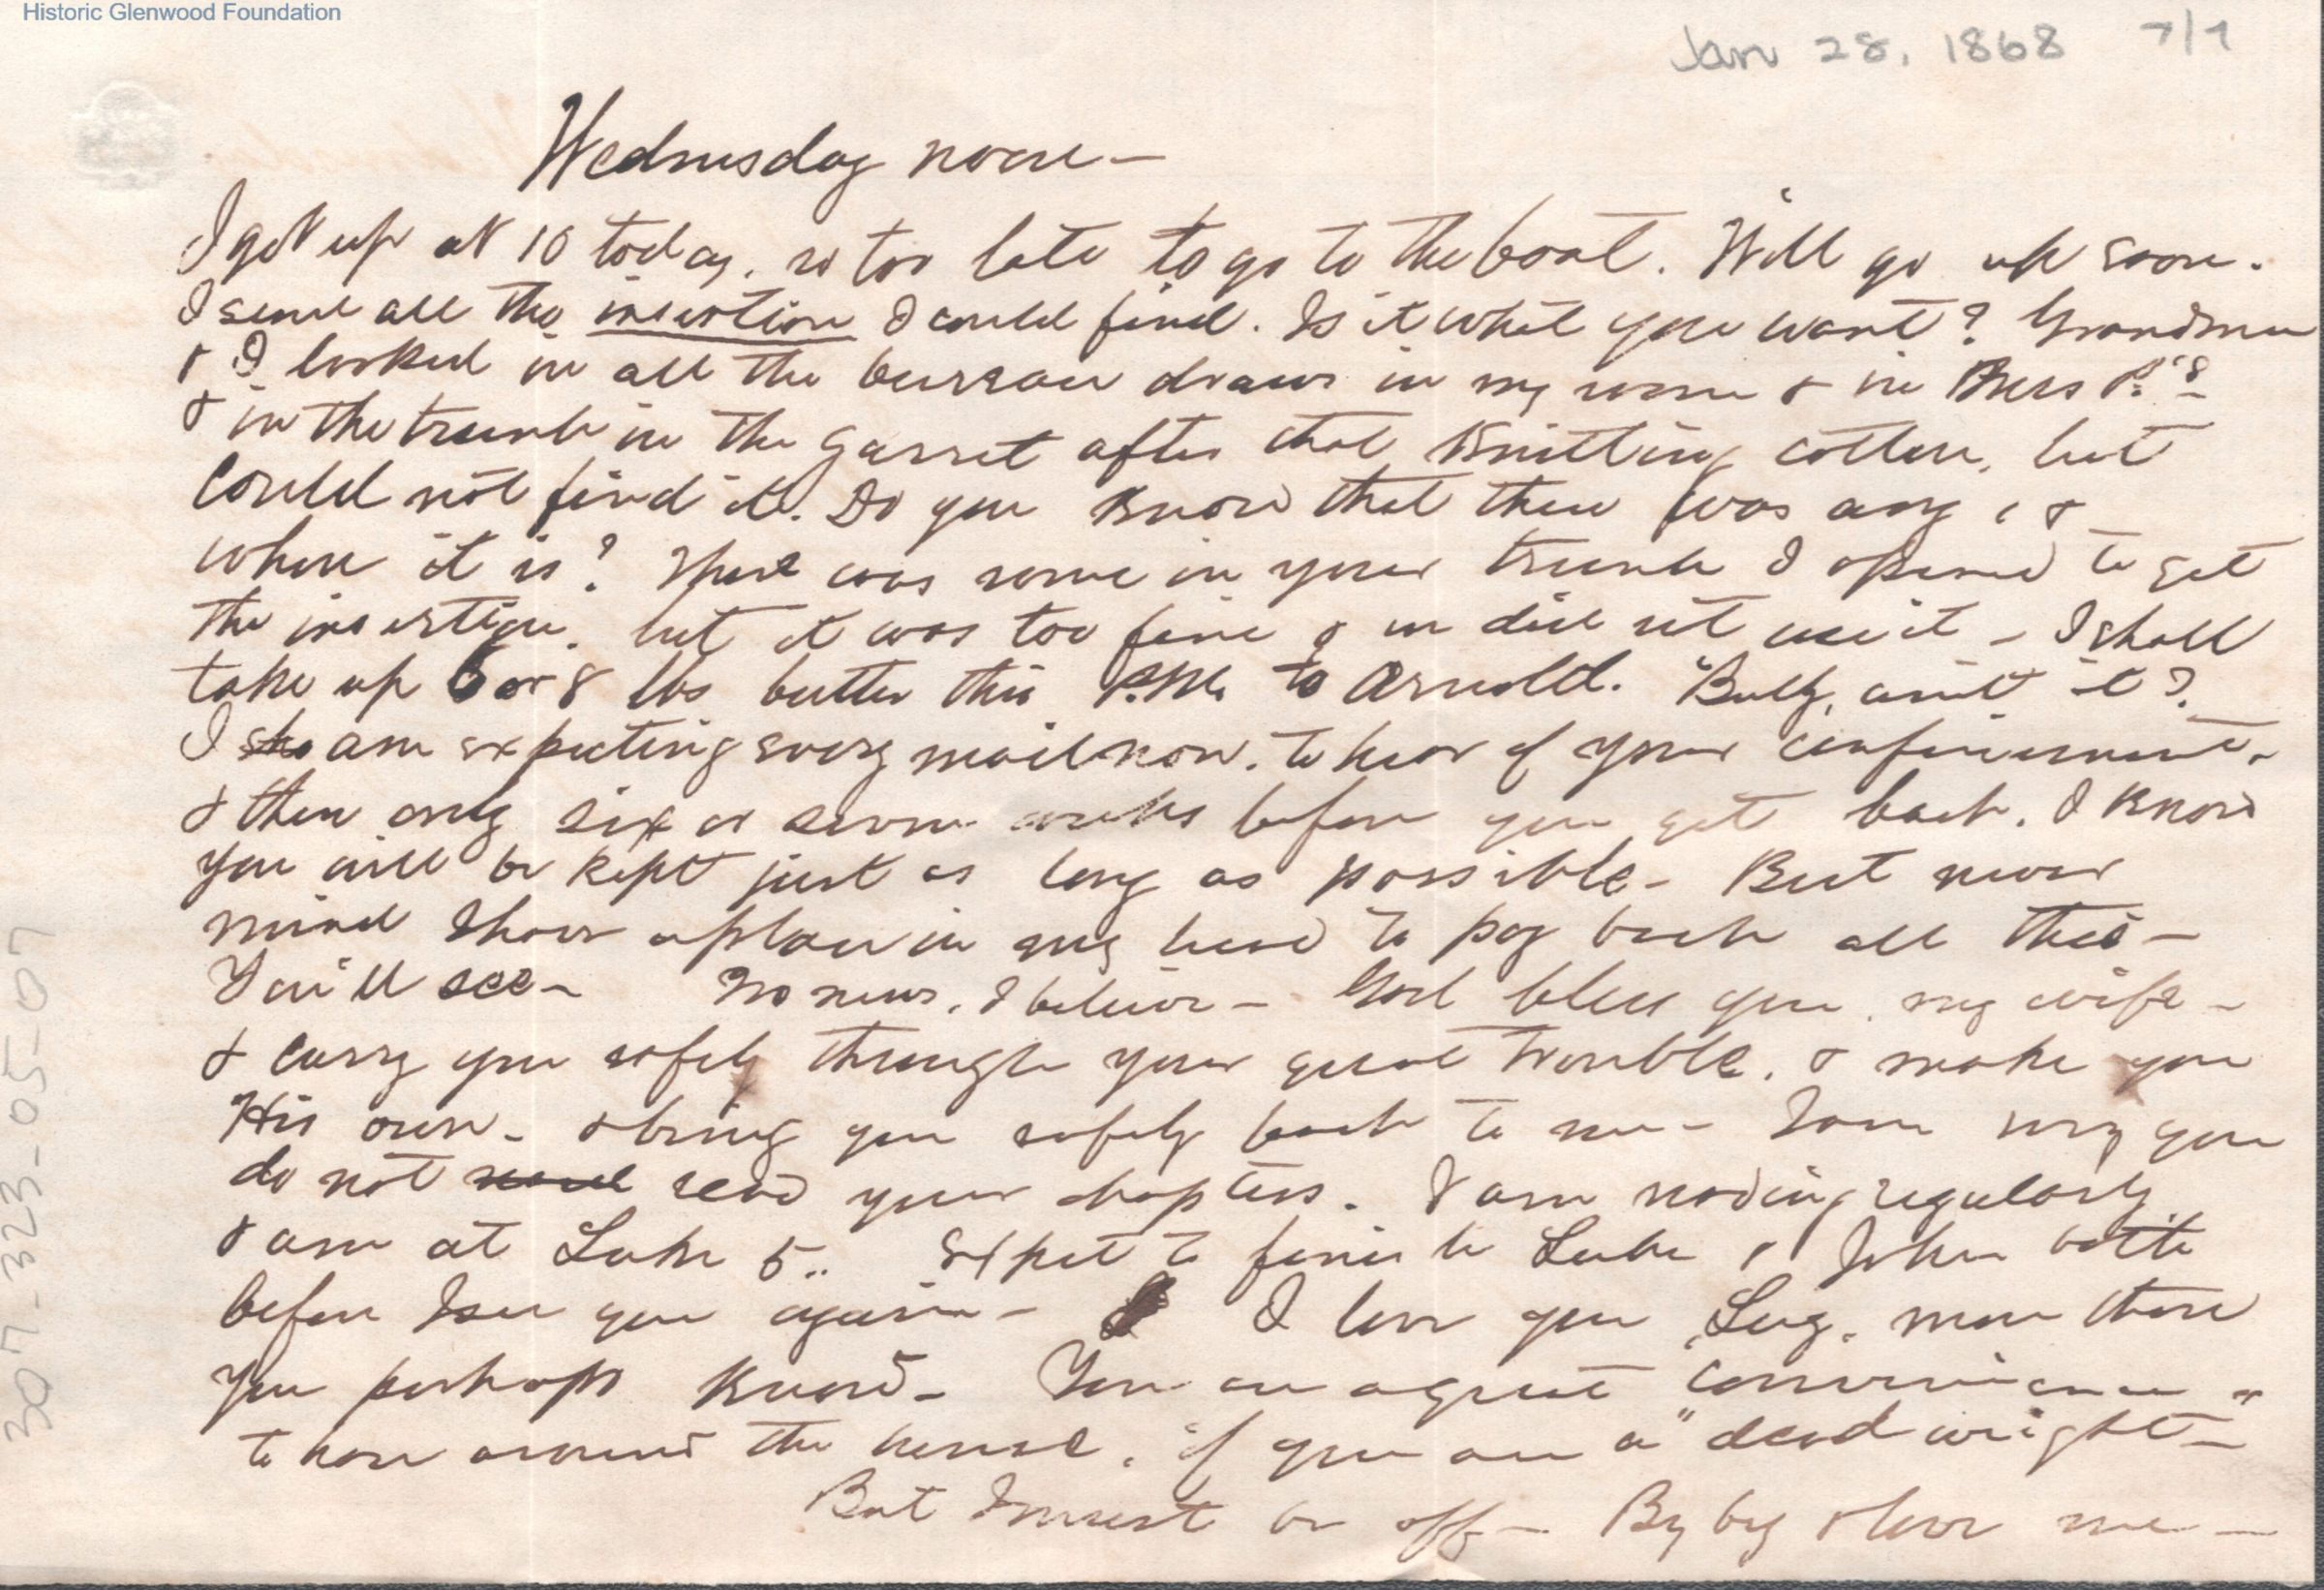 Historic Glenwood Foundation
Jan 28, 1868 7/7
Wednesday noon -
I got up at 10 today, so too late to go to the boat. Will go up soon.
I send all the insertion I could find. Is it what you want? Grandma
& I looked in all the bureau draws in my room & in Miss P.'s -
& in the trunk in the garret after that knitting cotton, but
could not find it. Do you know that there was any, &
where it is? There was some in your trunk I opened to get
the insertion, but it was too fine & we did not use it - I shall
take up 6 or 8 lbs butter this P.M. to Arnold. "Bully, ain't it?
I sha am expecting every mail now, to hear of your confinement,
& then only six or seven weeks before you get back. I know
you will be kept just as long as possible - But never
mind I have a plan in my head to pay back all this -
You'll see - No news, I believe - God bless you, my wife -
& carry you safely through your great trouble, & make you
His own - & bring you safely back to me - I am sorry you
do not read your chapters. I am reading regularly
& am at Luke 5.. Expect to finish Luke & John both
before I see you again - I love you, more than
you perhaps know - You are a great "convenience"
to have around the house, if you are a "dead weight" -
But I must be off - By by & love me -
307-323-05-07